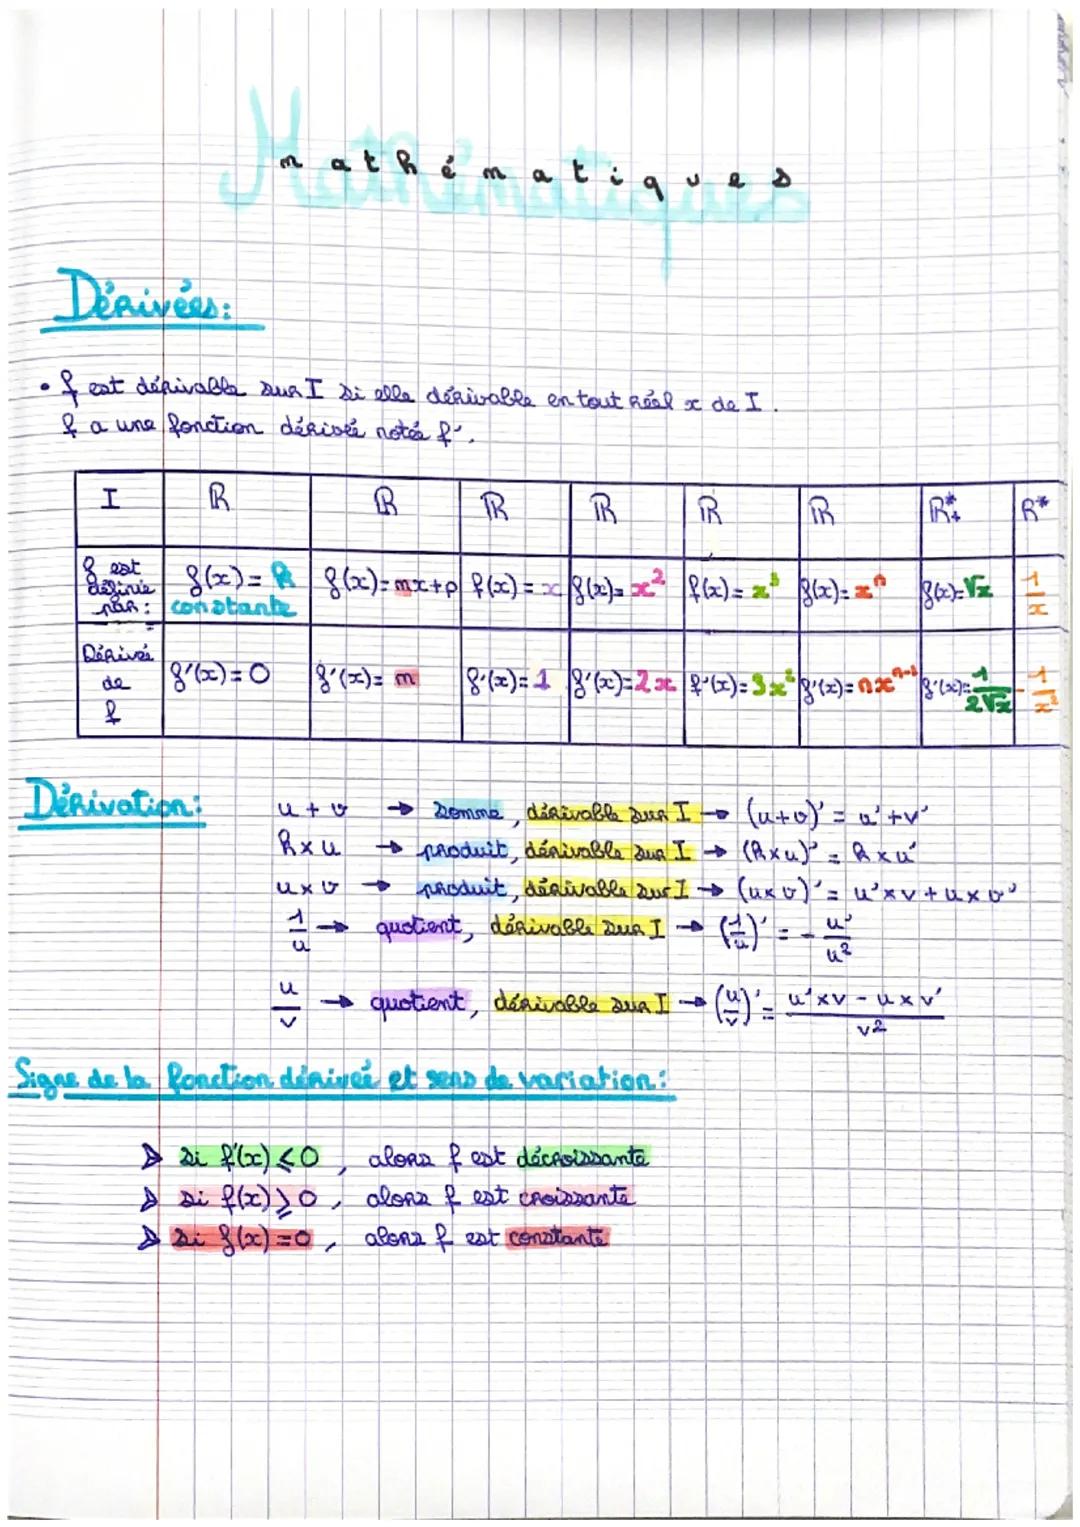 Mathématiques
mathématiques
Dérivées:
• f est dérivable sur I si elle dérivable en tout réel x de I.
f a une fonction dérivée notée f'.
I | ℝ | ℝ | ℝ | ℝ | ℝ | ℝ | ℝ*₊ | ℝ*
f est définie par: | f(x)= k constante | f(x)= mx+p | f(x) = x | f(x)= x² | f(x)= x³ | f(x)= xⁿ | f(x)=√x | 1/x
Dérivée de f | f'(x)=0 | f'(x)= m | f'(x)= 1 | f'(x)=2x | f'(x)=3x² | f'(x)=nxⁿ⁻¹ | f'(x)=1/2√x | -1/x²
Dérivation:
u + v → somme, dérivable sur I → (u+v)' = u'+v'
k×u → produit, dérivable sur I → (k×u)' = k×u'
u×v → produit, dérivable sur I → (u×v)' = u'×v+u×v'
1/u → quotient, dérivable sur I → (1/u)' = - u'/u²
u/v → quotient, dérivable sur I → (u/v)' = u'×v - u×v'/v²
Signe de la fonction dérivée et sens de variation:
➢ si f'(x) ⩽ 0, alors f est décroissante
➢ si f(x) ⩾ 0, alors f est croissante
➢ si f(x) = 0, alors f est constante